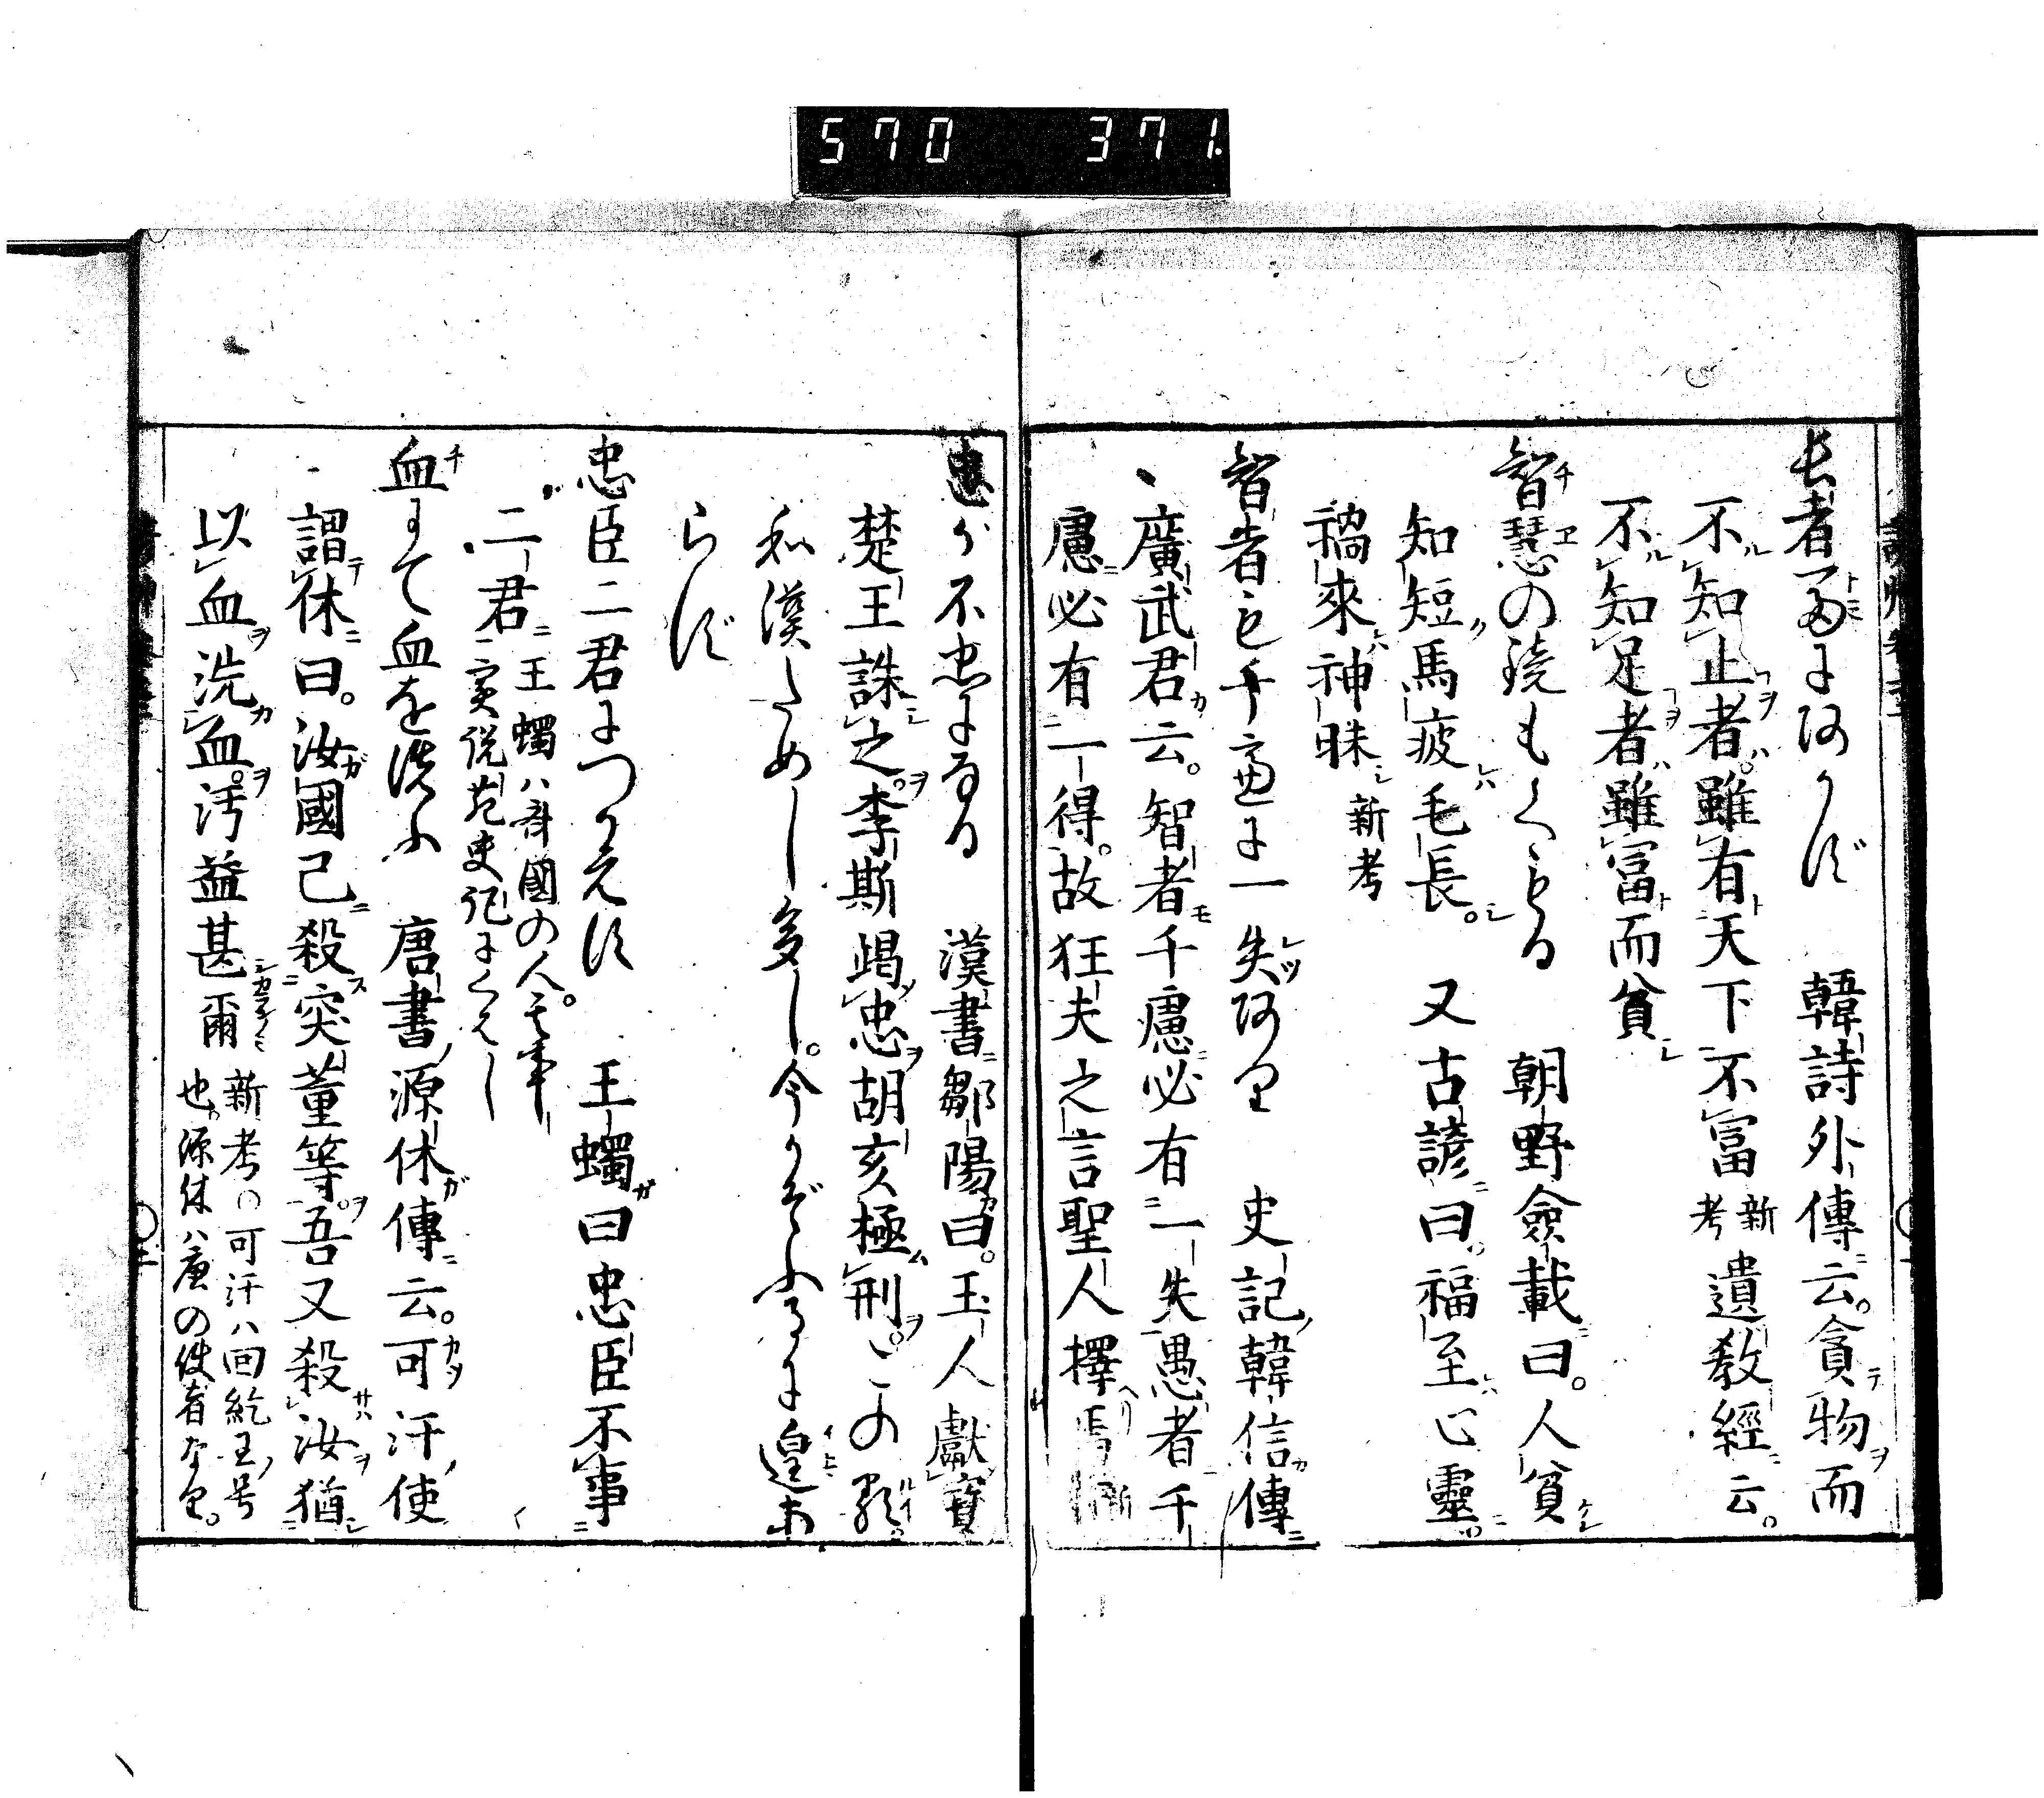 570 371
長者富にあかず　韓詩外傳云。貪物而
不知止者。雖有天下不富新考　遺教經云。
不知足者雖富而貧
智慧の鏡もくもる　朝野僉載曰。人貧
知短馬疲毛長。又古諺曰。福至心靈。
禍來神昧　新考
智者も千慮に一失あり　史記韓信傳
廣武君云。智者千慮必有一失愚者千
慮必有一得。故狂夫之言聖人擇焉新
忠が不忠になる　漢書鄒陽曰。玉人獻寶
楚王誅之。李斯竭忠胡亥極刑。この類
和漢ためし多し。今かぞふるに遑あ
らず
忠臣二君につかえず　王蠋曰忠臣不事
二君　王蠋ハ斉國の人。其事
実説苑史記にくはし
血にて血を洗ふ　唐書源休傳云。可汗使
謂休曰。汝國已殺突董等。吾又殺汝猶
以血洗血。汚益甚爾　新考○可汗ハ回紇王ノ号
也。源休ハ唐の使者なり。